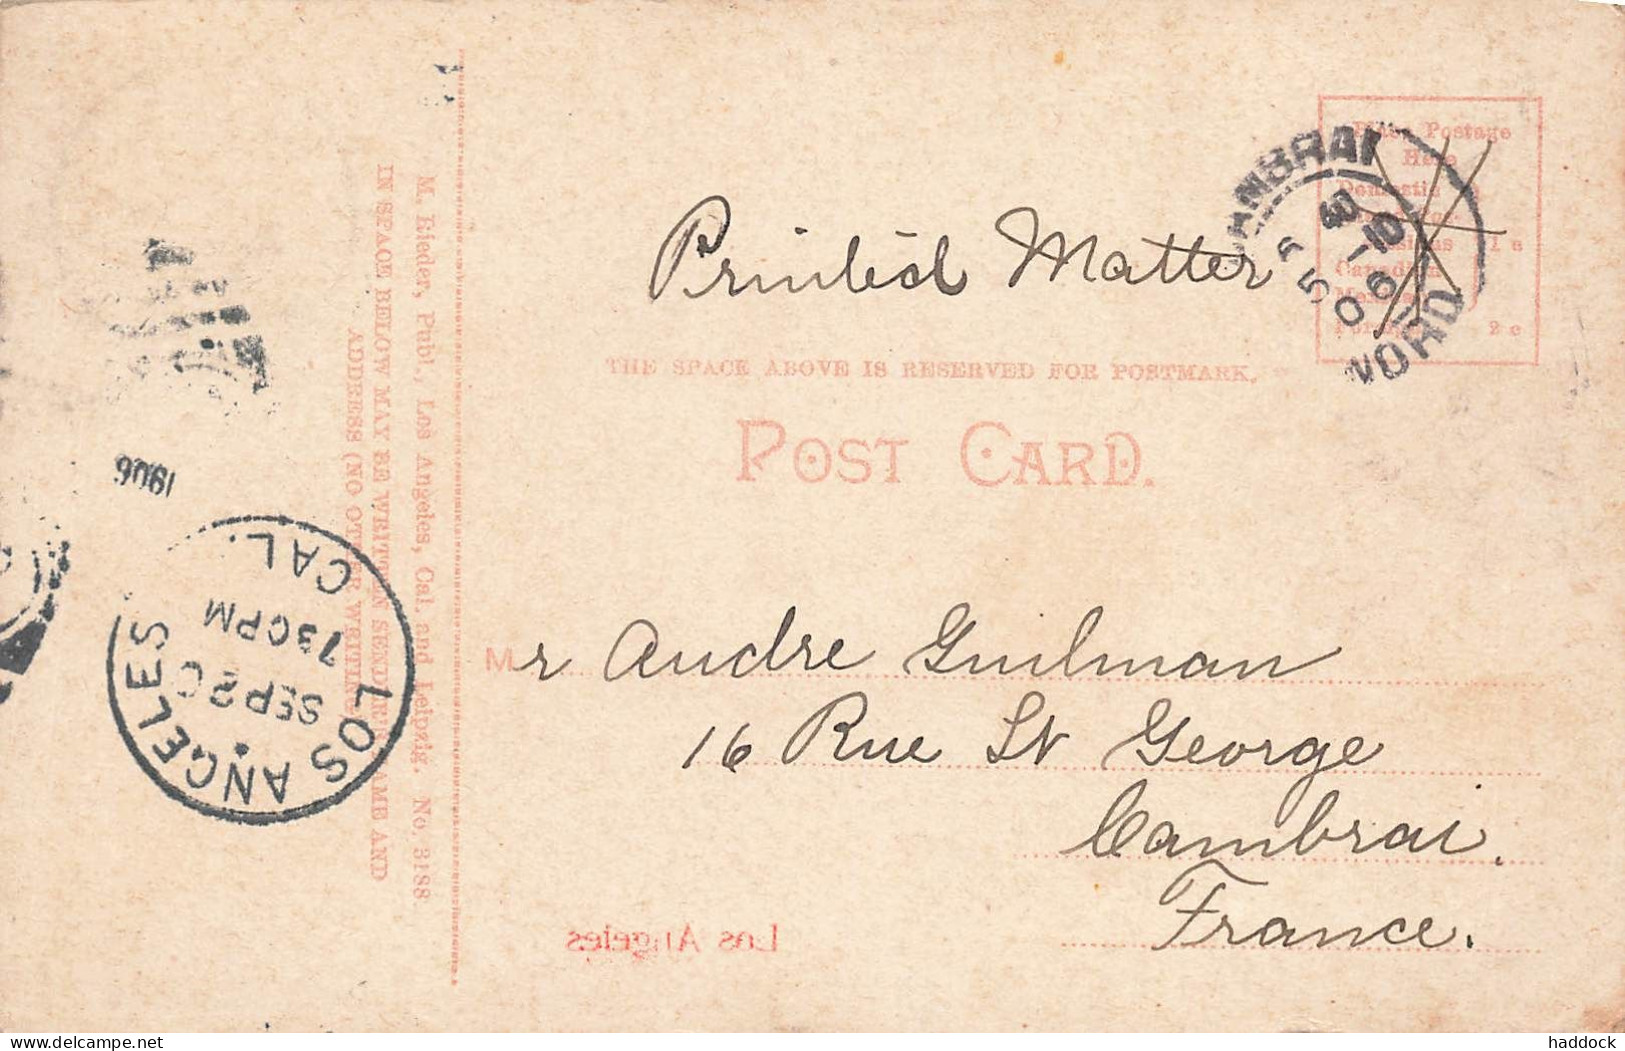 Printed Matter
Place Postage
Here
Domestic
1 c
Canadian
2 c
CAMBRAI
NORD
THE SPACE ABOVE IS RESERVED FOR POSTMARK.
POST CARD.
Mr Andre Guilman
16 Rue St George
Cambrai.
France.
Los Angeles
M. Rieder, Publ., Los Angeles, Cal. and Leipzig. No. 3188
IN SPACE BELOW MAY BE WRITTEN SENDER'S NAME AND
ADDRESS (NO OTHER WRITING)
1906
LOS ANGELES
CAL.
SEP 20
730PM
delcampe.net
haddock